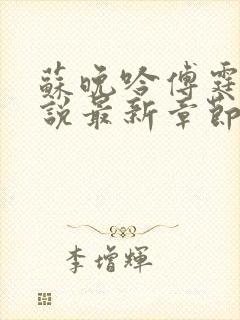 蘇晚吟傅霆
說最新章節
李增輝